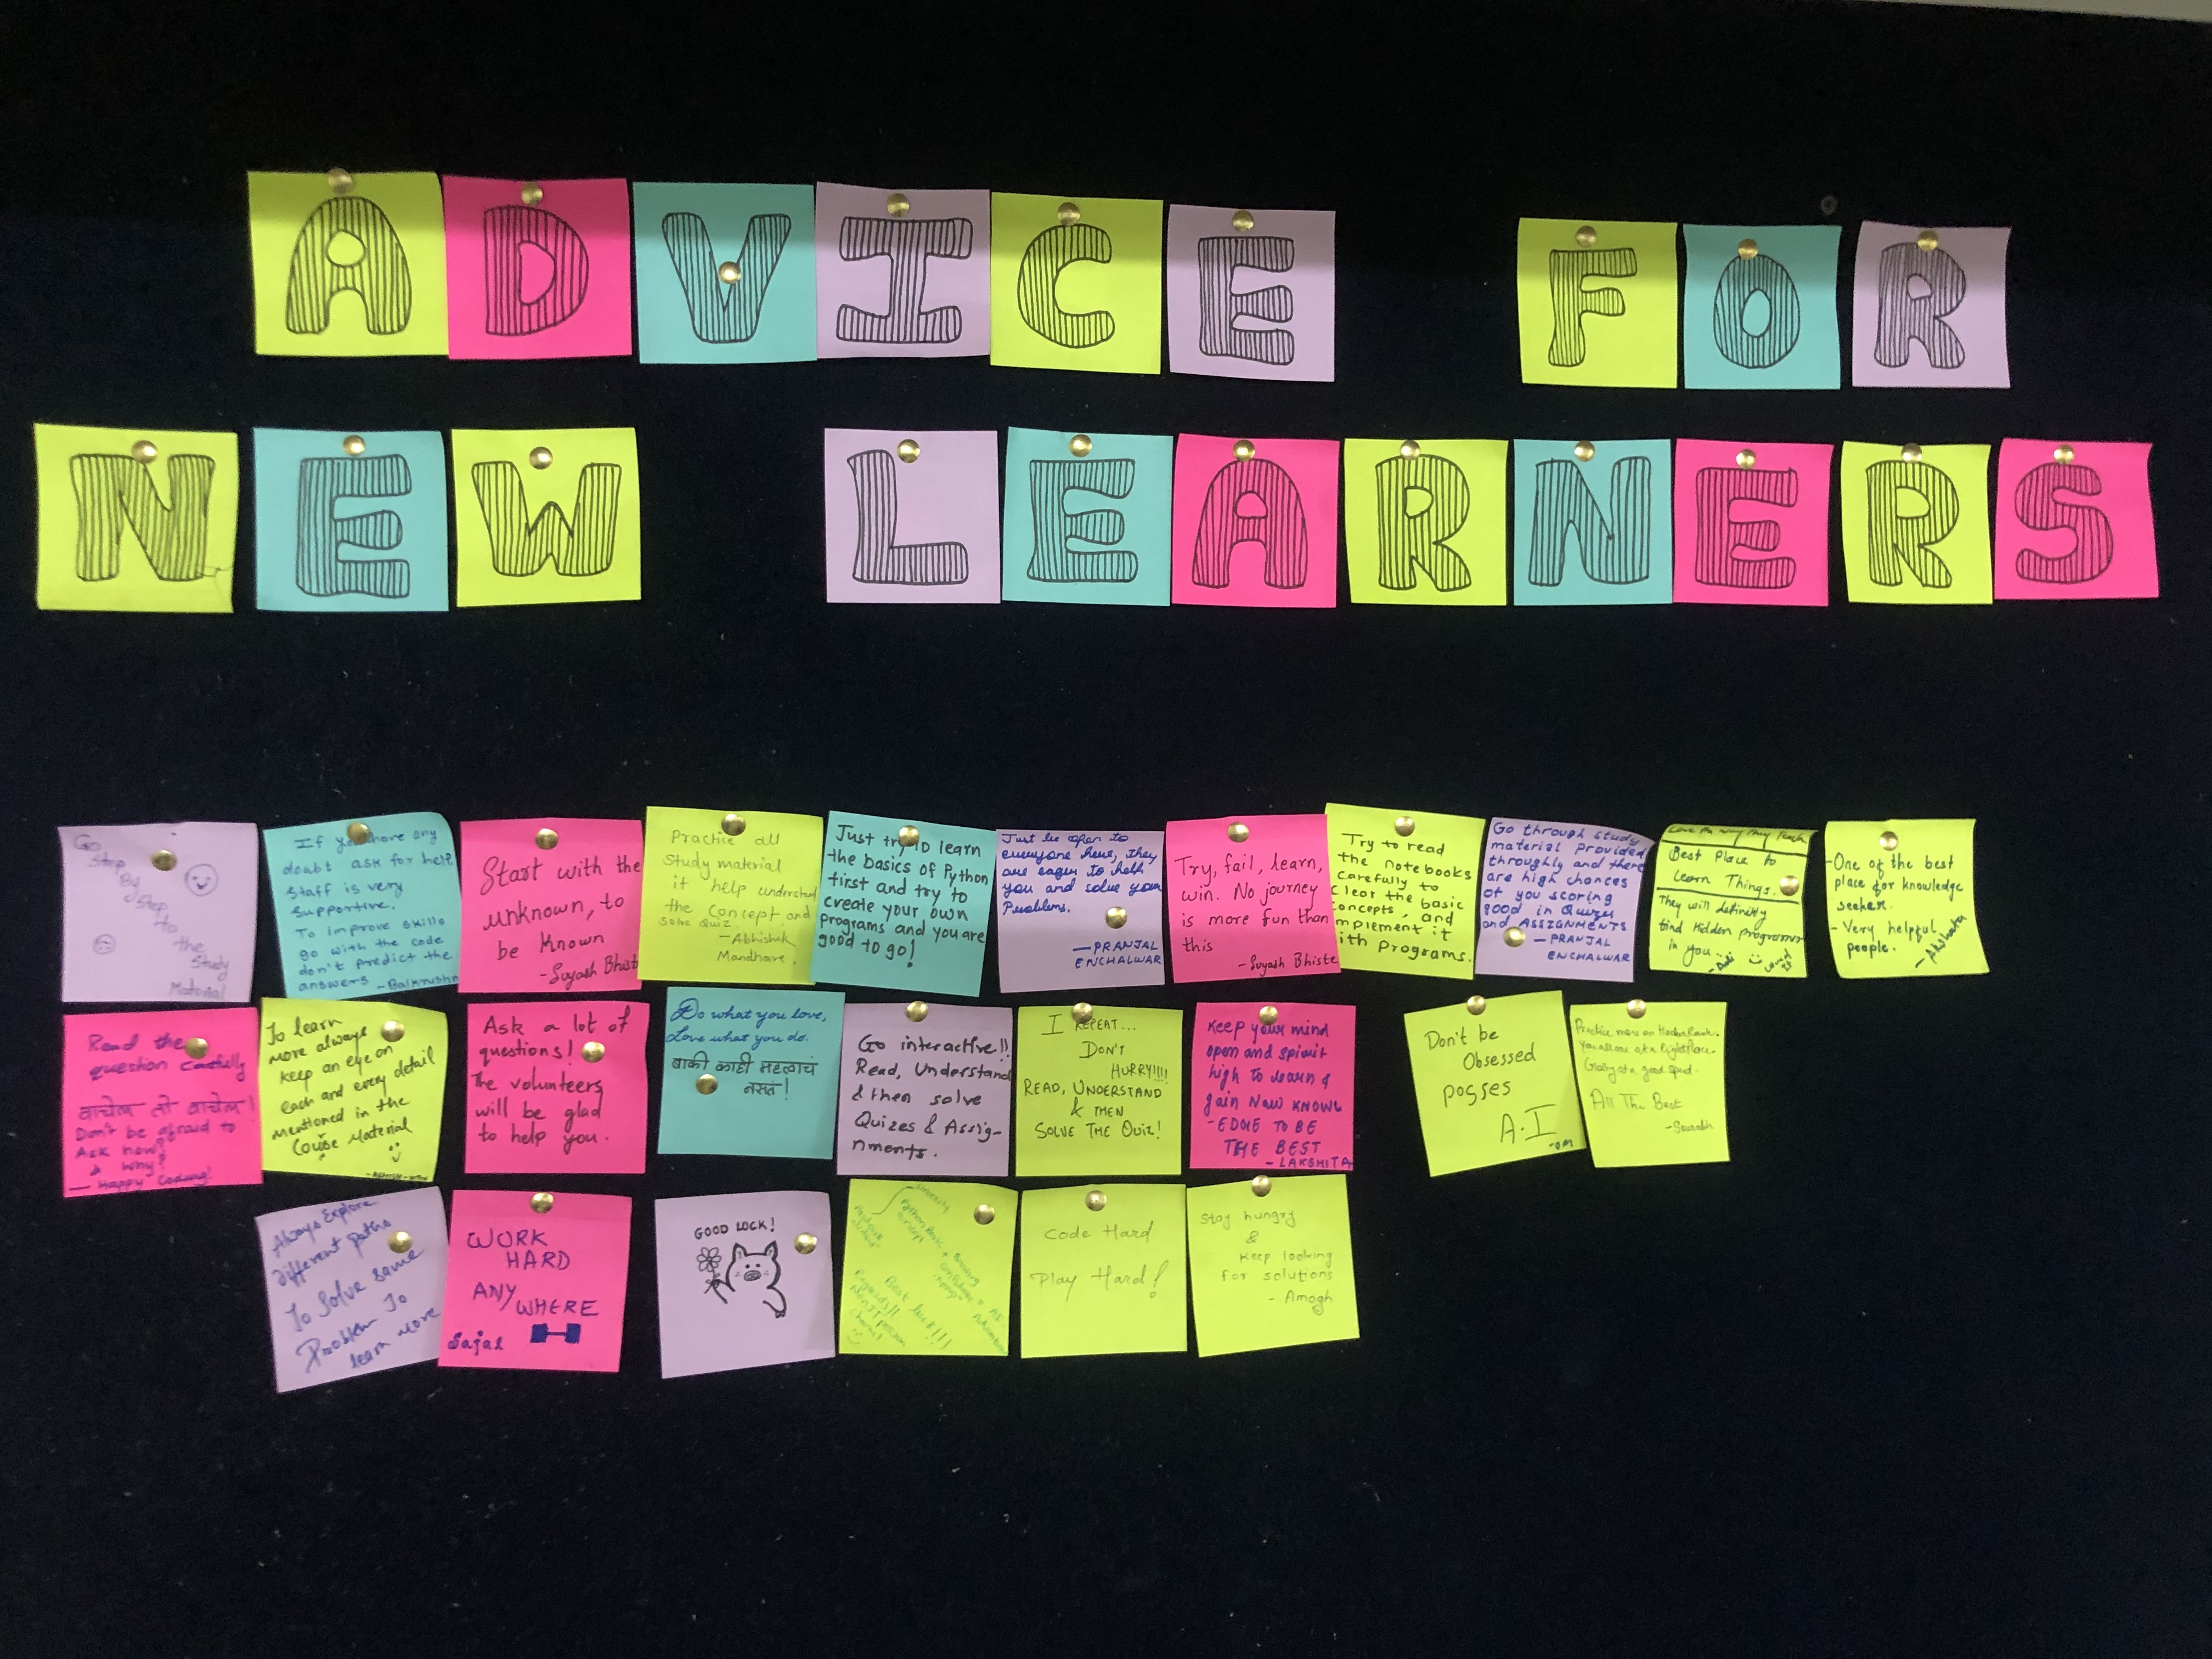 ADVICE FOR
NEW LEARNERS
Go
Step
By
Step
to
the
Study
Material
If you have any
doubt ask for help
Staff is very
supportive.
To improve skills
go with the code
don't predict the
answers -Balkrushn
Start with the
unknown, to
be known
-Suyash Bhist
Practice all
study material
it help understand
the concept and
solve quiz.
-Abhishek
Mandhare.
Just try to learn
the basics of Python
first and try to
create your own
programs and you are
good to go!
Just be open to
everyone here, they
are eager to help
you and solve your
Problems.
-PRANJAL
ENCHALWAR
Try, fail, learn,
win. No journey
is more fun than
this
-Suyash Bhiste
Try to read
the notebooks
carefully to
clear the basic
concepts, and
implement it
with Programs.
Go through study
material provided
throughly and there
are high chances
of you scoring
good in Quizes
and ASSIGNMENTS
- PRANJAL
ENCHALWAR
Love the way they teach
Best Place to
Learn Things.
They will definitly
find Hidden programmer
in you
Loved It
-One of the best
place for knowledge
seeker.
- Very helpful
people.
- Akshata
Read the
question carefully
वाचेल तो वाचेल!
Don't be afraid to
Ask how?
& Why?
- Happy Coding!
To learn
more always
keep an eye on
each and every detail
mentioned in the
Course Material
Ask a lot of
questions!
The volunteers
will be glad
to help you.
Do what you love,
Love what you do.
बाकी काही महत्वाचं
नसतं!
Go interactive!!
Read, Understand
& then solve
Quizes & Assig-
nments.
I REPEAT...
DON'T
HURRY!!!!
READ, UNDERSTAND
& THEN
SOLVE THE QUIZ!
Keep your mind
open and spirit
high to learn &
gain New KNOWL
-EDGE TO BE
THE BEST
- LAKSHITA
Don't be
Obsessed
posses
A.I
-om
Practice more on HackerRank.
You all are at a right place
Going at a good speed.
All The Best
-Saurabh
Always Explore
different paths
To Solve same
Problem To
learn more
WORK
HARD
ANY WHERE
Sajal
GOOD LUCK!
Best luck!!!
Regards!!
Code Hard
Play Hard!
Stay hungry
&
keep looking
for solutions
- Amogh